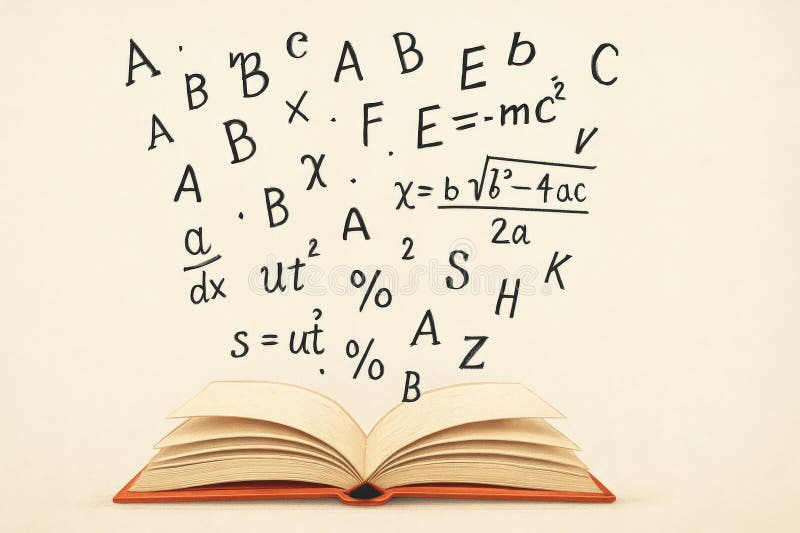 A B B c A B E b C
A B x F E=-mc²
V
A B χ x= b√b³-4ac / 2a
a/dx ut² A ² S H K
%
s = ut' % A Z
B